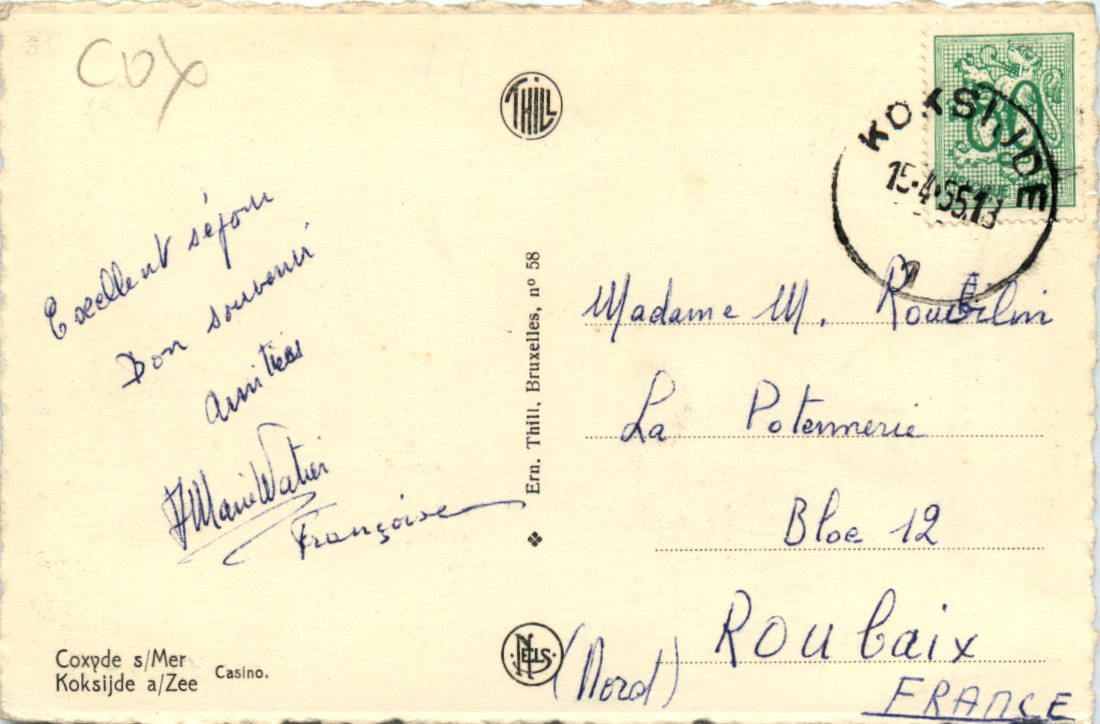 COX
THILL
KOKSIJDE
15-4-55.13
80
BELGIE
Excellent séjour
Bon souvenir
Amitiés
JMarie Watier
Françoise
Ern. Thill, Bruxelles, nº 58
Madame M.
La Potennerie
Bloc 12
ROUbaix
(Nord)
FRANCE
NELS
Coxyde s/Mer
Koksijde a/Zee
Casino.